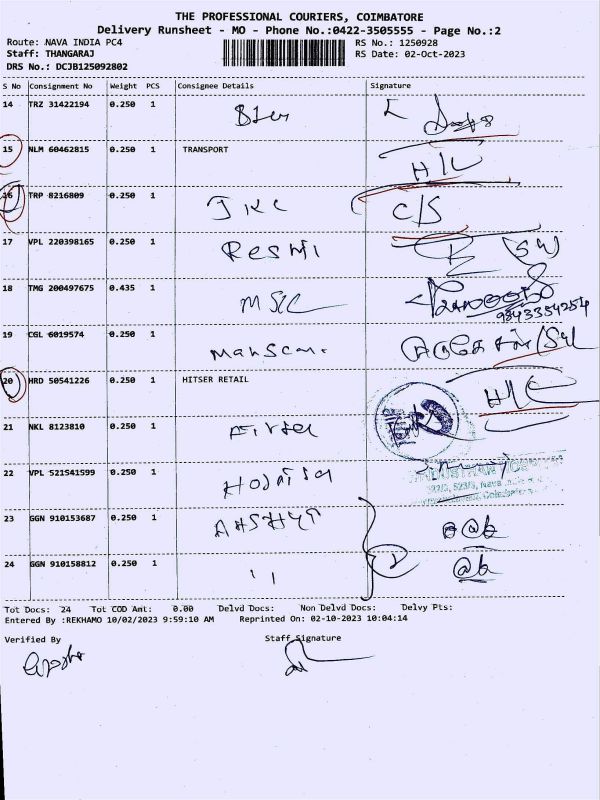 THE PROFESSIONAL COURIERS, COIMBATORE
Delivery Runsheet - MO - Phone No.:0422-3505555 - Page No.:2
Route: NAVA INDIA PC4 RS No.: 1250928
Staff: THANGARAJ RS Date: 02-Oct-2023
DRS No.: DCJB125092802
S No Consignment No Weight PCS Consignee Details Signature
14 TRZ 31422194 0.250 1
15 NLM 60462815 0.250 1 TRANSPORT H/C
16 TRP 8216809 0.250 1 C/S
17 VPL 220398165 0.250 1 Reshmi
18 TMG 200497675 0.435 1
19 CGL 6019574 0.250 1
20 HRD 50541226 0.250 1 HITSER RETAIL H/C
21 NKL 8123810 0.250 1 Airtel
22 VPL 521541599 0.250 1
23 GGN 910153687 0.250 1
24 GGN 910158812 0.250 1 ''
Tot Docs: 24 Tot COD Amt: 0.00 Delvd Docs: Non Delvd Docs: Delvy Pts:
Entered By :REKHAMO 10/02/2023 9:59:10 AM Reprinted On: 02-10-2023 10:04:14
Verified By Staff Signature